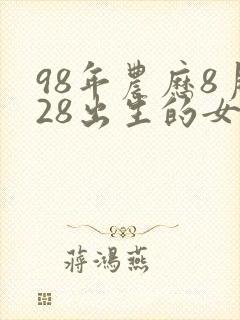 98年農歷8月
28出生的女
蔣鴻燕